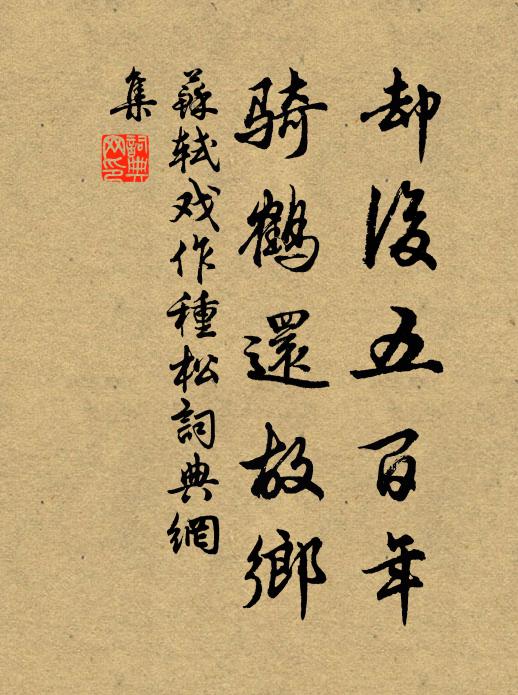 却後五百年
騎鶴還故鄉
蘇軾戏作種松詞典網
集
詞典
网印